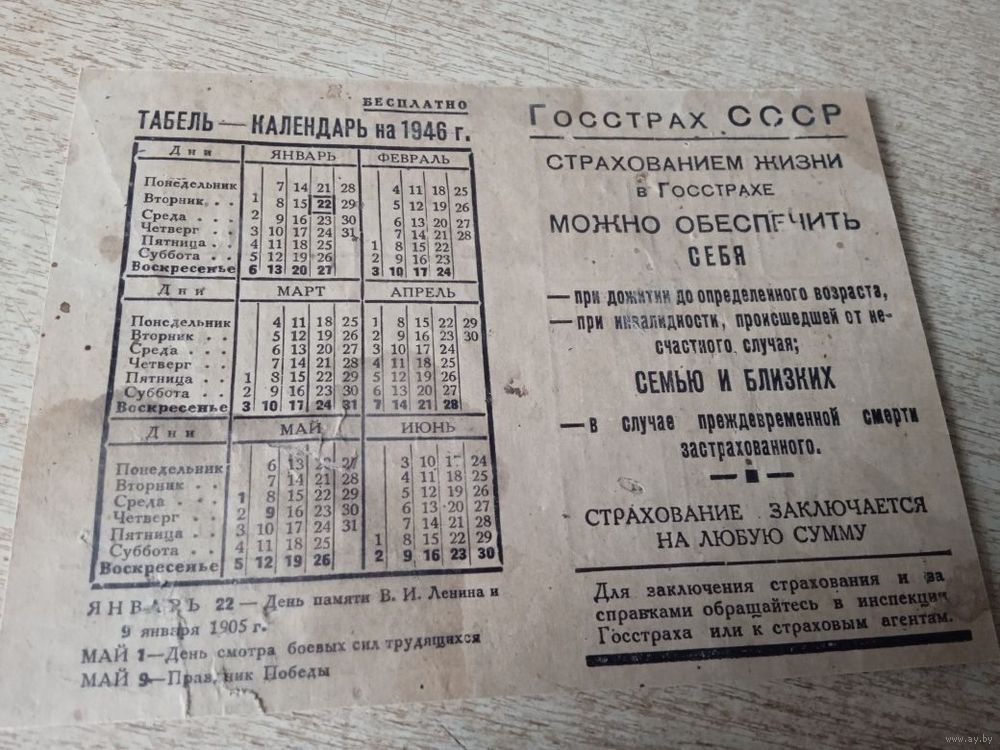 БЕСПЛАТНО
ТАБЕЛЬ — КАЛЕНДАРЬ на 1946 г.
Дни ЯНВАРЬ ФЕВРАЛЬ
Понедельник 7 14 21 28 4 11 18 25
Вторник . . 1 8 15 22 29 5 12 19 26
Среда . . 2 9 16 23 30 6 13 20 27
Четверг . . 3 10 17 24 31 7 14 21 28
Пятница . . 4 11 18 25 1 8 15 22
Суббота . . 5 12 19 26 2 9 16 23
Воскресенье 6 13 20 27 3 10 17 24
Дни МАРТ АПРЕЛЬ
Понедельник 4 11 18 25 1 8 15 22 29
Вторник . . 5 12 19 26 2 9 16 23 30
Среда . . 6 13 20 27 3 10 17 24
Четверг . . 7 14 21 28 4 11 18 25
Пятница . . 1 8 15 22 29 5 12 19 26
Суббота . . 2 9 16 23 30 6 13 20 27
Воскресенье 3 10 17 24 31 7 14 21 28
Дни МАЙ ИЮНЬ
Понедельник 6 13 20 27 3 10 17 24
Вторник . . 7 14 21 28 4 11 18 25
Среда . . 1 8 15 22 29 5 12 19 26
Четверг . . 2 9 16 23 30 6 13 20 27
Пятница . . 3 10 17 24 31 7 14 21 28
Суббота . . 4 11 18 25 1 8 15 22 29
Воскресенье 5 12 19 26 2 9 16 23 30
ЯНВАРЬ 22 — День памяти В. И. Ленина и
9 января 1905 г.
МАЙ 1—День смотра боевых сил трудящихся
МАЙ 9—Праздник Победы
ГОССТРАХ СССР
СТРАХОВАНИЕМ ЖИЗНИ
в ГОССТРАХЕ
МОЖНО ОБЕСПЕЧИТЬ
СЕБЯ
— при дожитии до определенного возраста,
— при инвалидности, происшедшей от не-
счастного случая;
СЕМЬЮ И БЛИЗКИХ
— в случае преждевременной смерти
застрахованного.
СТРАХОВАНИЕ ЗАКЛЮЧАЕТСЯ
НА ЛЮБУЮ СУММУ
Для заключения страхования и за
справками обращайтесь в инспекции
Госстраха или к страховым агентам.
www.ay.by